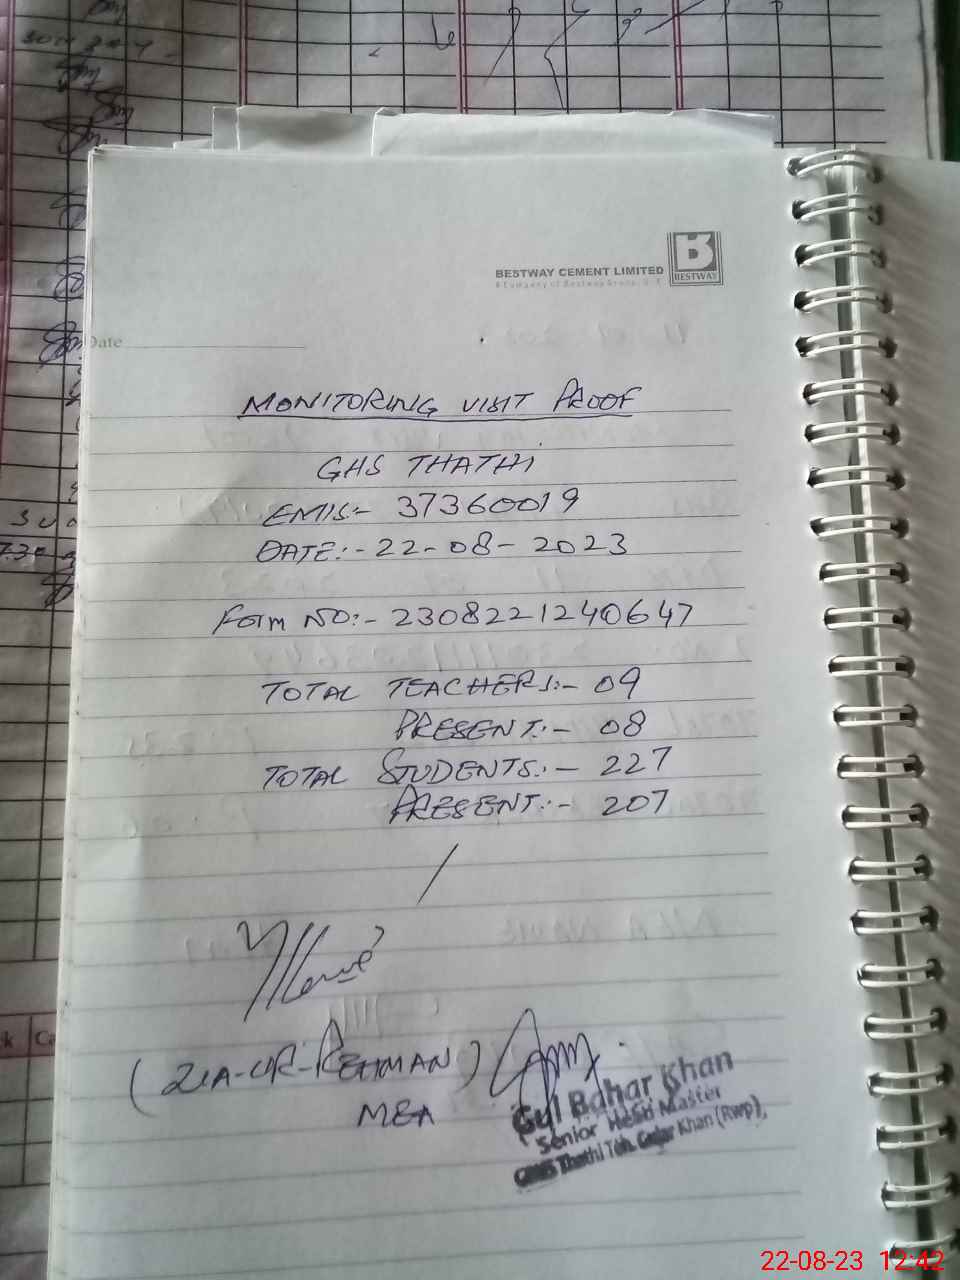 BESTWAY CEMENT LIMITED
A Company of Bestway Group, U.K.
BESTWAY
Date
MONITORING VISIT PROOF
GHS THATHI
EMIS:- 37360019
DATE:- 22-08-2023
Form NO:- 2308221240647
TOTAL TEACHERS:- 09
PRESENT:- 08
TOTAL STUDENTS:- 227
PRESENT:- 207
(ZIA-UR-REHMAN)
MEA
Gul Bahar Khan
Senior Head Master
Thathi Teh. Gujar Khan (Rwp).
22-08-23 12:42